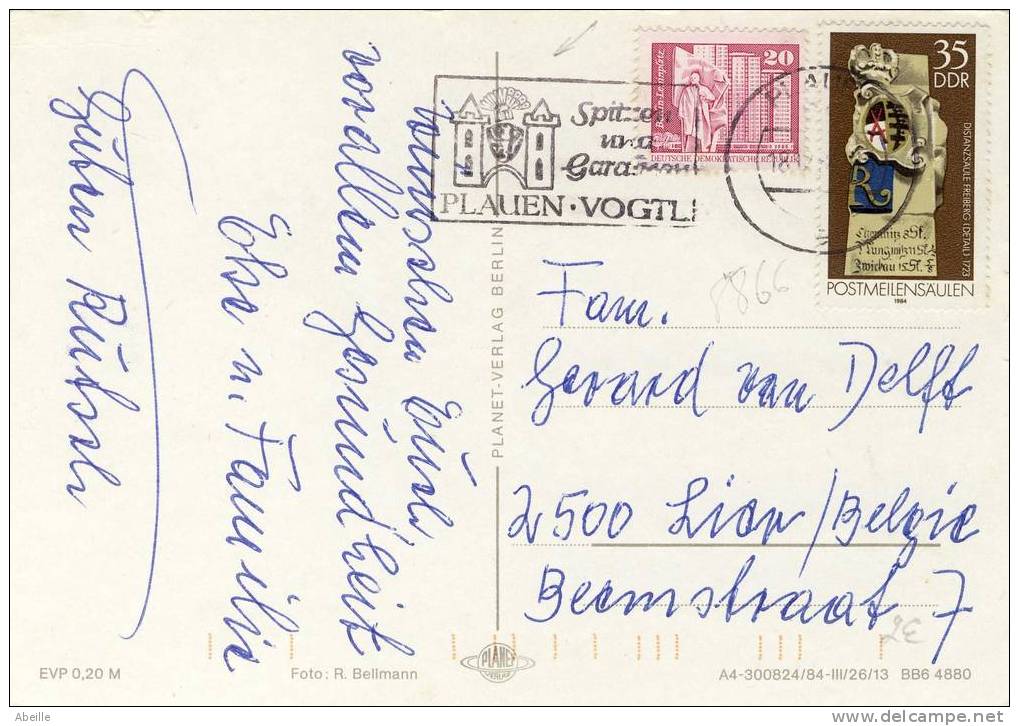 wünschen Euch
vor allem Gesundheit
Ehe u. Familie
Guten Rutsch
Spitzen
und
PLAUEN · VOGTL
20
Berlin-Leninplatz
DEUTSCHE DEMOKRATISCHE REPUBLIK
35
DDR
DISTANZSÄULE FREIBERG (DETAIL) 1723
R
POSTMEILENSÄULEN
1984
8866
Fam.
Gerard van Delft
2500 Lier/Belgie
Beemstraat 7
2€
PLANET-VERLAG BERLIN
EVP 0,20 M
Foto: R. Bellmann
PLANET
VERLAG
A4-300824/84-III/26/13 BB6 4880
Abeille
www.delcampe.net